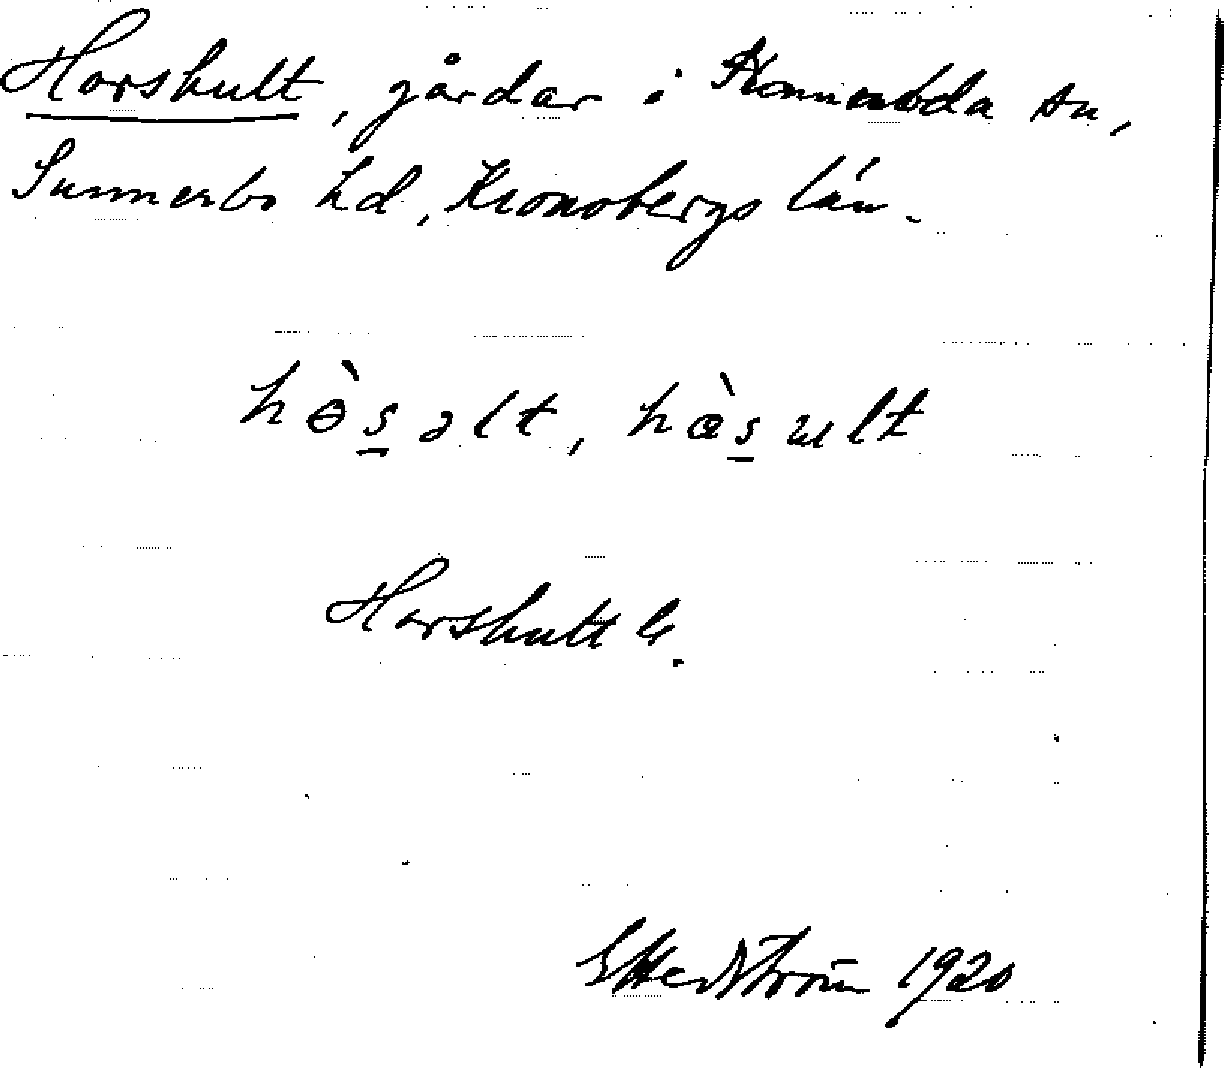 Horshult, gårdar i Hamneda sn,
Sunnerbo hd, Kronobergs län.
hɵ̀s̱əlt, hœ̀s̱ult
Horshult G.
Hedström 1920